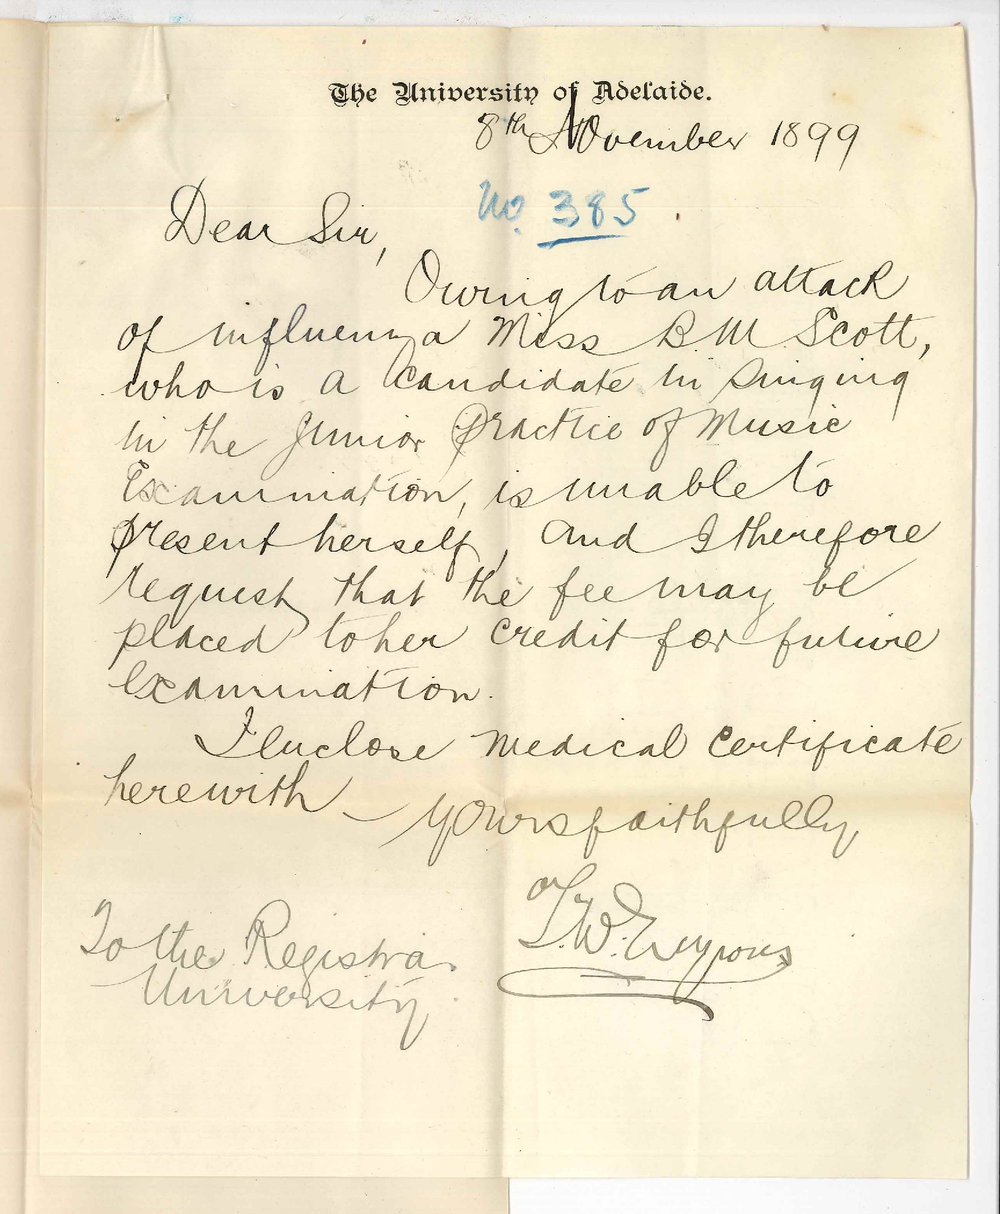 The University of Adelaide.
8th November 1899
No. 385
Dear Sir,
Owing to an attack
of influenza Miss B. M Scott,
who is a candidate in Singing
in the Junior Practice of Music
Examination, is unable to
present herself, and I therefore
request that the fee may be
placed to her credit for future
Examination.
I enclose medical certificate
herewith —
Yours faithfully,
T. W.
To the Registrar
University.